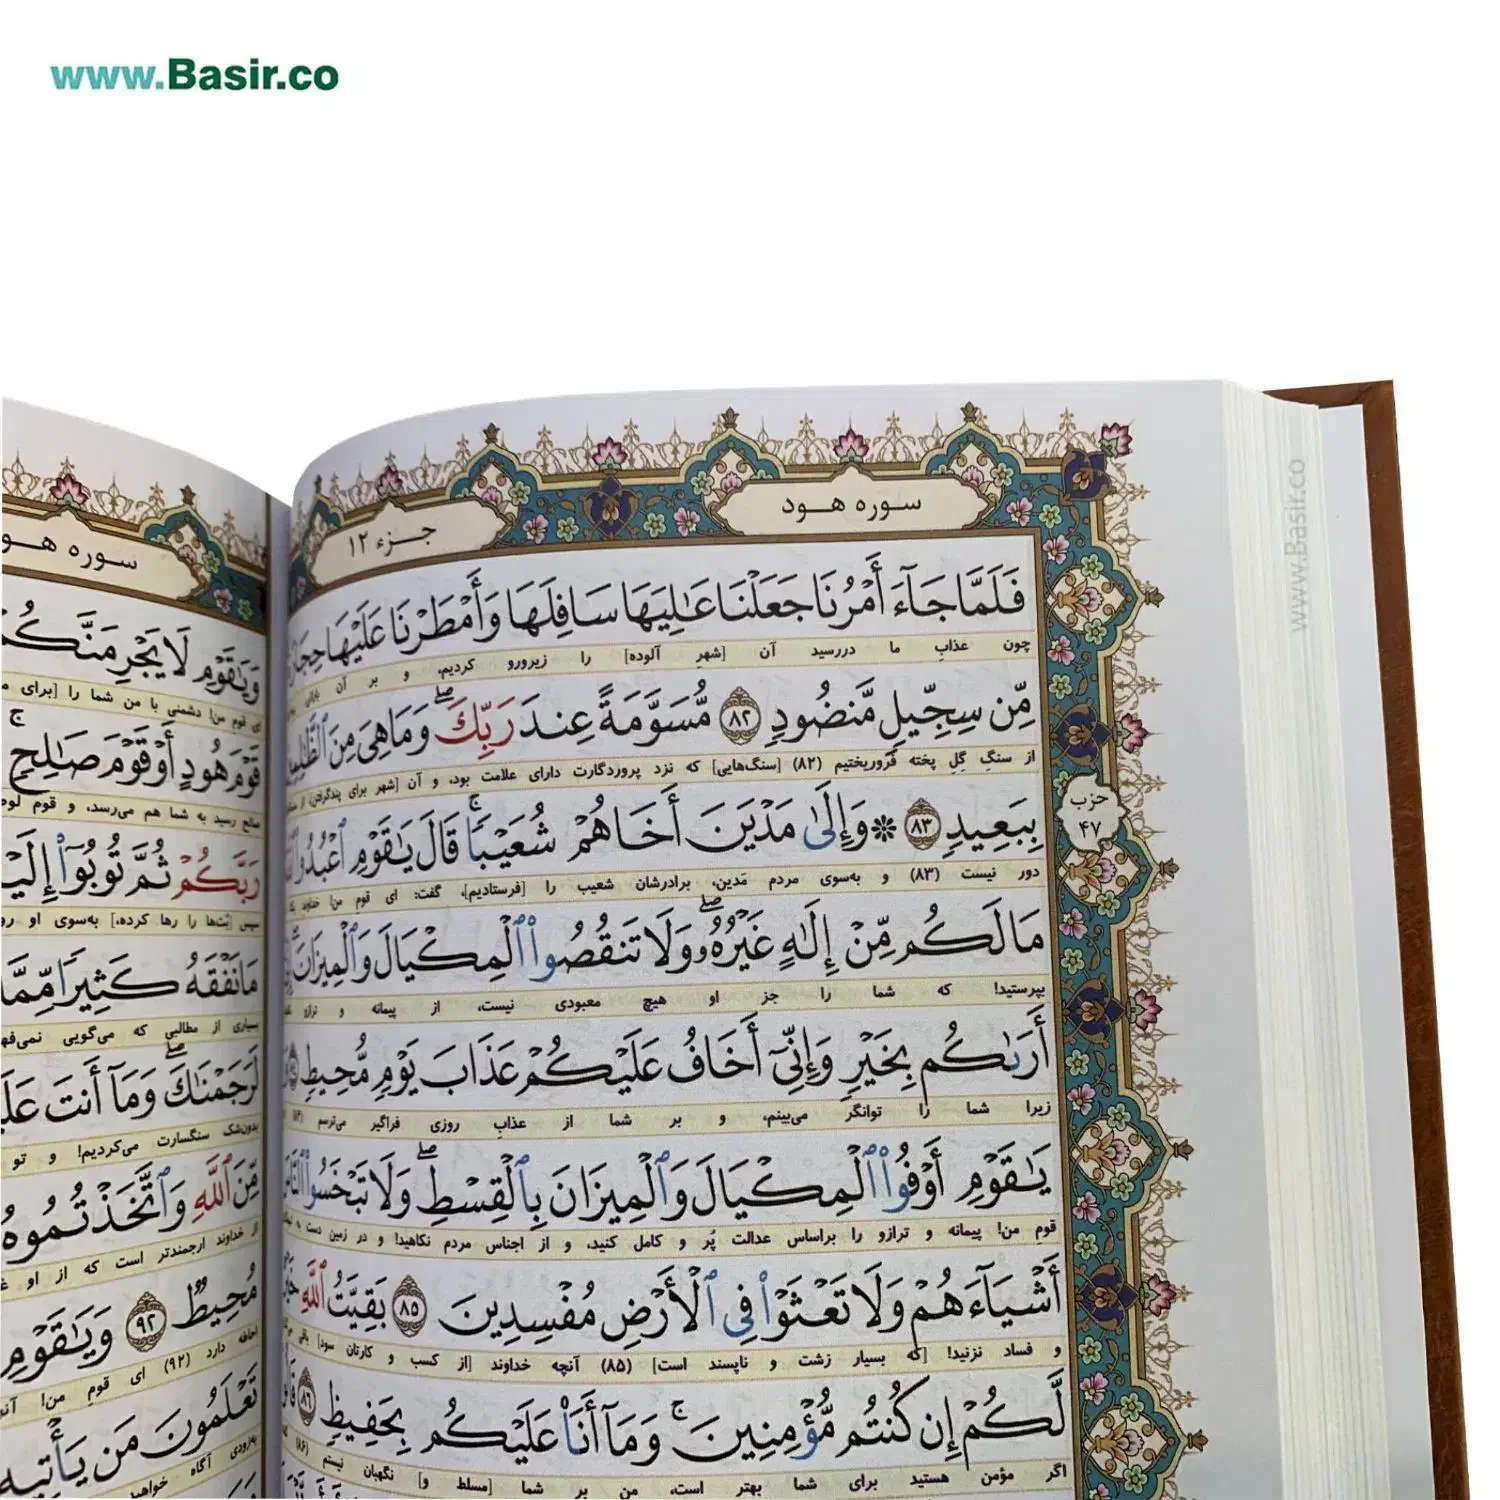 www.Basir.co
سوره هود
جزء ۱۲
فَلَمَّا جَآءَ أَمْرُنَا جَعَلْنَا عَٰلِيَهَا سَافِلَهَا وَأَمْطَرْنَا عَلَيْهَا
چون عذاب ما دررسید آن [شهر آلوده] را زیرورو کردیم، و بر آن
مِّن سِجِّيلٍ مَّنضُودٍ ۸۲ مُّسَوَّمَةً عِندَ رَبِّكَ ۖ وَمَا هِىَ مِنَ
از سنگ گِل پخته فروریختیم (۸۲) [سنگ‌هایی] که نزد پروردگارت دارای علامت بود، و آن [شهر برای پندگرفتن]، از
بِبَعِيدٍ ۸۳ ❊ وَإِلَىٰ مَدْيَنَ أَخَاهُمْ شُعَيْبًا ۚ قَالَ يَٰقَوْمِ ٱعْبُدُوا۟
دور نیست (۸۳) و به‌سوی مردم مَدین، برادرشان شعیب را [فرستادیم]، گفت: ای قوم من! خداوند
حزب
۴۷
مَا لَكُم مِّنْ إِلَٰهٍ غَيْرُهُۥ ۖ وَلَا تَنقُصُوا۟ ٱلْمِكْيَالَ وَٱلْمِيزَانَ ۚ
بپرستید! که شما را جز او هیچ معبودی نیست، از پیمانه و ترازو
أَرَىٰكُم بِخَيْرٍ وَإِنِّىٓ أَخَافُ عَلَيْكُمْ عَذَابَ يَوْمٍ مُّحِيطٍ
زیرا شما را توانگر می‌بینم، و بر شما از عذاب روزی فراگیر می‌ترسم
يَٰقَوْمِ أَوْفُوا۟ ٱلْمِكْيَالَ وَٱلْمِيزَانَ بِٱلْقِسْطِ ۖ وَلَا تَبْخَسُوا۟
قومِ من! پیمانه و ترازو را براساس عدالت پُر و کامل کنید، و از اجناس مردم نکاهید! و در زمین دست به
أَشْيَآءَهُمْ وَلَا تَعْثَوْا۟ فِى ٱلْأَرْضِ مُفْسِدِينَ ۸۵ بَقِيَّتُ ٱللَّهِ
و فساد نزنید! [که بسیار زشت و ناپسند است] (۸۵) آنچه خداوند [از کسب و کارتان سود] باقی
لَّكُمْ إِن كُنتُم مُّؤْمِنِينَ ۚ وَمَآ أَنَا۠ عَلَيْكُم بِحَفِيظٍ ۸۶
اگر مؤمن هستید برای شما بهتر است، من بر شما [مسلط و] نگهبان نیستم (۸۶)
سوره
وَيَٰقَوْمِ لَا يَجْرِمَنَّكُمْ
ای قوم من! دشمنی با من شما را [برای
قَوْمَ هُودٍ أَوْ قَوْمَ صَٰلِحٍ ۚ
صالح رسید به شما هم می‌رسد، و قوم لوط
رَبَّكُمْ ثُمَّ تُوبُوٓا۟
سپس [بت‌ها را رها کرده،] به‌سوی او
مَا نَفْقَهُ كَثِيرًا مِّمَّا
بسیاری از مطالبی که می‌گویی
لَرَجَمْنَٰكَ ۖ وَمَآ أَنتَ
بدون‌شک سنگسارت می‌کردیم! و تو
مِّنَ ٱللَّهِ وَٱتَّخَذْتُمُوهُ
از خداوند ارجمندتر است که از او
مُحِيطٌ ۹۲ وَيَٰقَوْمِ
احاطه دارد (۹۲) ای قوم من!
تَعْلَمُونَ مَن يَأْتِيهِ
به‌زودی آگاه خواهید
www.Basir.co